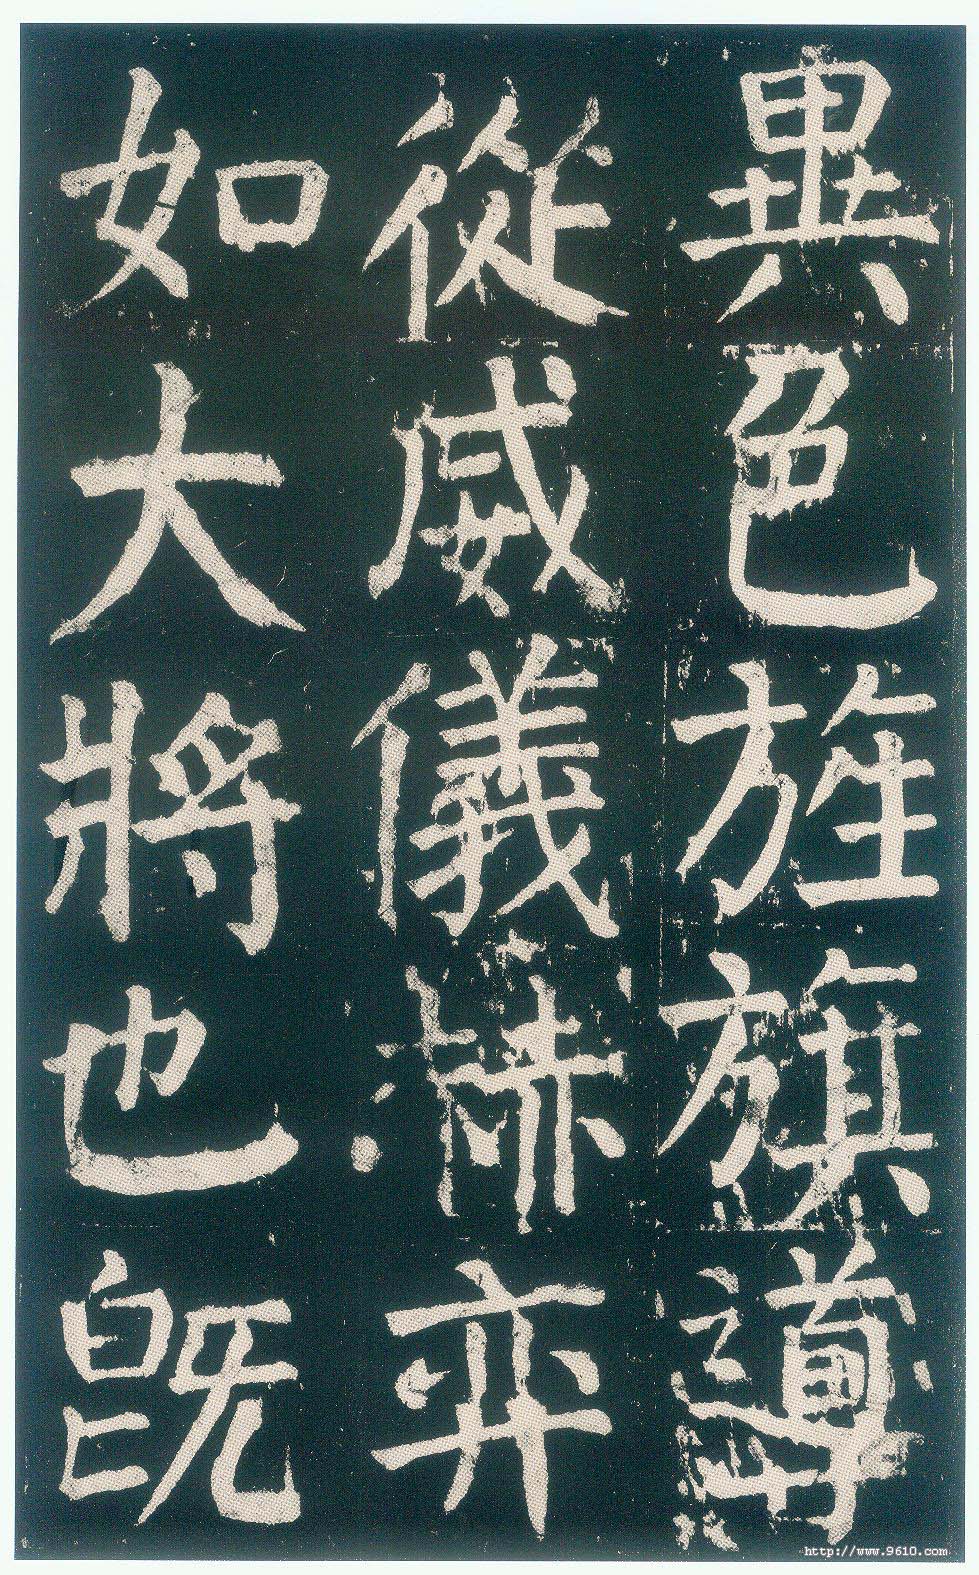 異色旌旗導
從威儀赫弈
如大將也既
http://www.9610.com